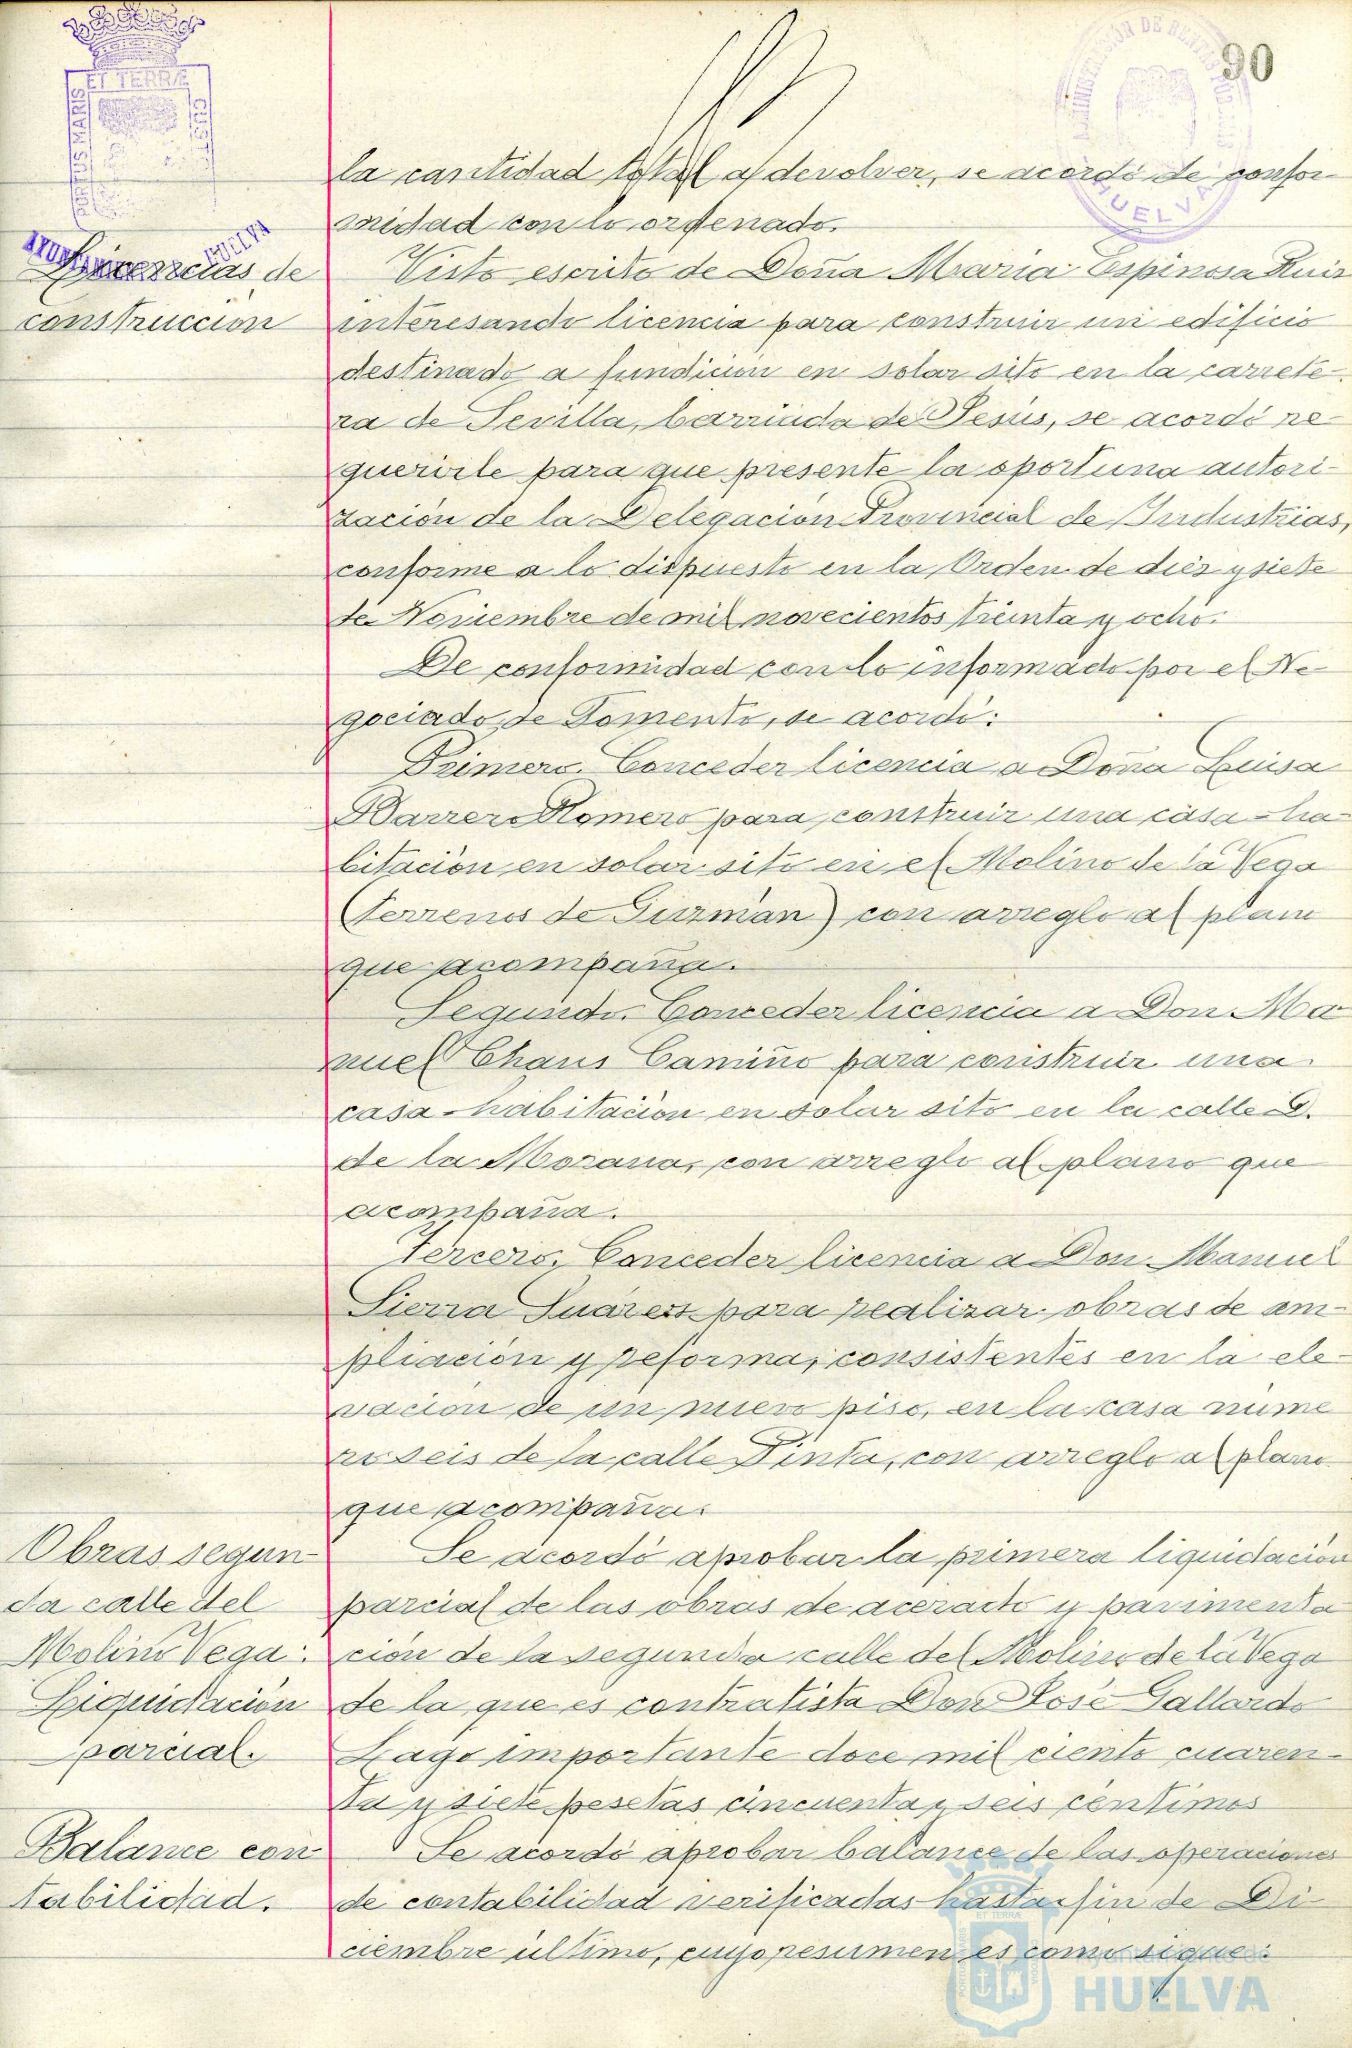 90
PORTUS MARIS
ET TERRÆ
CUSTODIA
AYUNTAMIENTO HUELVA
ADMINISTRACIÓN DE RENTAS PÚBLICAS
HUELVA
la cantidad total a devolver, se acordó de confor-
midad con lo ordenado.
Licencias de
construcción
Visto escrito de Doña Maria Espinosa Ruiz
interesando licencia para construir un edificio
destinado a fundición en solar sito en la carrete-
ra de Sevilla, barriada de Jesús, se acordó re-
querirle para que presente la oportuna autori-
zación de la Delegación Provincial de Industrias,
conforme a lo dispuesto en la Orden de diez y siete
de Noviembre de mil novecientos treinta y ocho.
De conformidad con lo informado por el Ne-
gociado de Fomento, se acordó:
Primero. Conceder licencia a Doña Luisa
Barrero Romero para construir una casa-ha-
bitación en solar sito en el Molino de la Vega
(Terrenos de Guzmán) con arreglo al plano
que acompaña.
Segundo. Conceder licencia a Don Ma-
nuel Chans Camiño para construir una
casa-habitación en solar sito en la calle D.
de la Morana, con arreglo al plano que
acompaña.
Tercero. Conceder licencia a Don Manuel
Sierra Suárez para realizar obras de am-
pliación y reforma, consistentes en la ele-
vación de un nuevo piso, en la casa núme
ro seis de la calle Pinta, con arreglo al plano
que acompaña.
Obras segun-
da calle del
Molino Vega:
Liquidación
parcial.
Se acordó aprobar la primera liquidación
parcial de las obras de acerado y pavimenta
ción de la segunda calle del Molino de la Vega
de la que es contratista Don José Gallardo
Lago importante doce mil ciento cuaren-
ta y siete pesetas cincuenta y seis céntimos
Balance con
tabilidad.
Se acordó aprobar balance de las operaciones
de contabilidad verificadas hasta fin de Di-
ciembre último, cuyo resumen es como sigue:
Ayuntamiento de
HUELVA